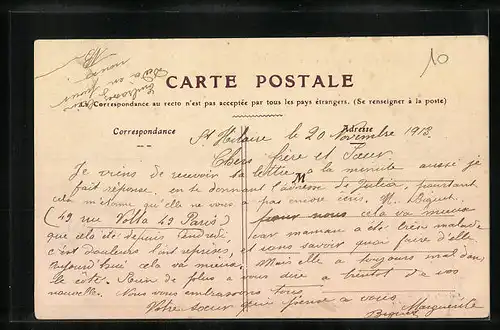 10
CARTE POSTALE
La Correspondance au recto n'est pas acceptée par tous les pays étrangers. (Se renseigner à la poste)
Correspondance
Adresse
St Hilaire le 20 Novembre 1913.
Chers frère et Sœur
Je viens de recevoir ta lettre a la minute aussi je
fait réponse en te donnant l'adresse de Julia, pourtant
cela m'étonne qu'elle ne vous a pas encore écris. M. Bigué
(49 rue Volta 49 Paris) pour nous cela va mieux
que cela été depuis Vendredi, car maman a été bien malade
c'est douleurs l'ont reprises, et sans savoir quoi faire d'elle
aujourd'hui cela va mieux. Mais elle a toujours mal dans
le côté. Rien de plus a vous dire a bientot de vos
nouvelle. Nous vous embrassons tous
Votre sœur qui pense a vous.
Marguerite
M